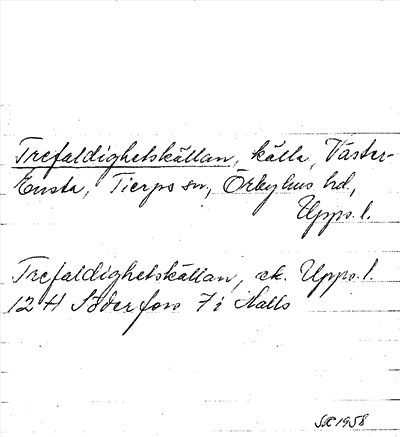 Trefaldighetskällan, källa, Väster-
Ensta, Tierps sn, Örbyhus hd,
Upps. l.
Trefaldighetskällan, ek. Upps. l.
12 H Söderfors 7 i Nalls
SÆ 1958